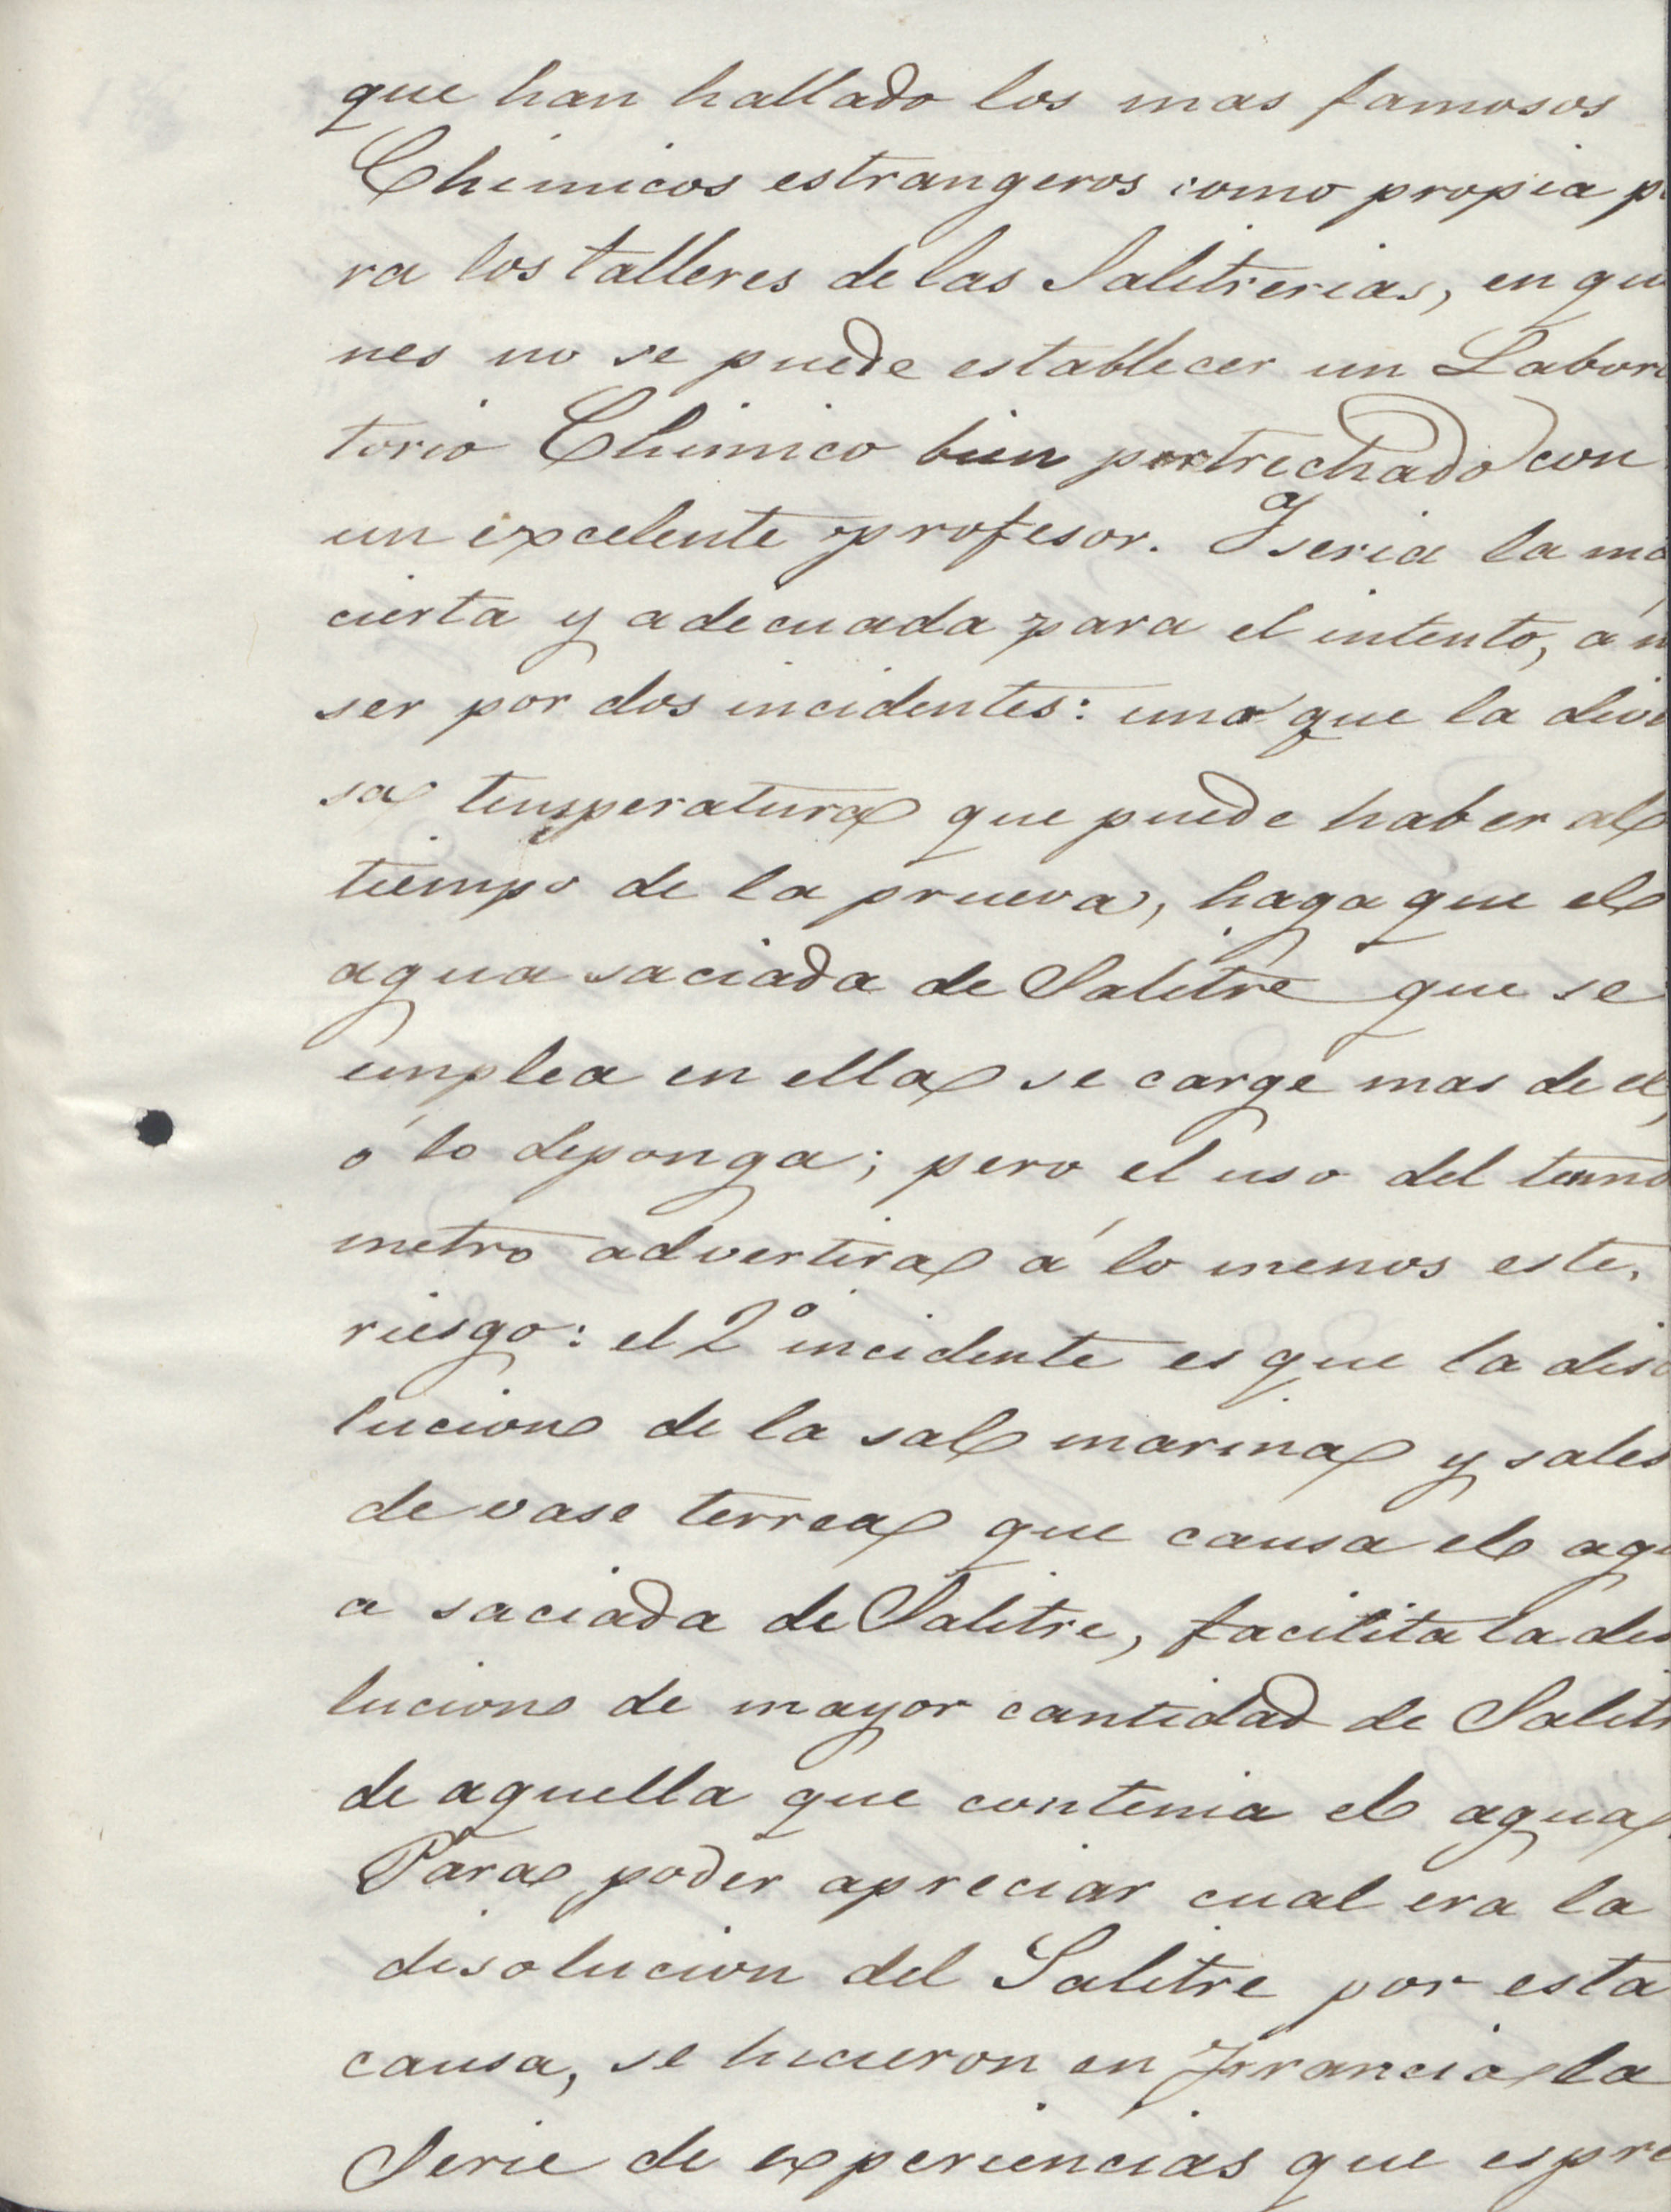 que han hallado los mas famosos
Chimicos estrangeros como propia p
ra los talleres de las Salitrerias, en qu
nes no se puede establecer un Labora
torio Chimico bien pertrechado con
un excelente profesor. Y seria la ma
cierta y adecuada para el intento, á n
ser por dos incidentes: uno que la dive
sa temperatura que puede haber al
tiempo de la prueva, haga que el
agua saciada de Salitre que se
emplea en ella se carge mas de el,
ó lo deponga; pero el uso del termo
metro advertira á lo menos este
riesgo: el 2º incidente es que la diso
lucion de la sal marina y sales
de vase terrea que causa el agu
a saciada de Salitre, facilita la dis
lucion de mayor cantidad de Salitr
de aquella que contenia el agua.
Para poder apreciar cual era la
disolucion del Salitre por esta
causa, se hicieron en Francia la
Serie de experiencias que espre